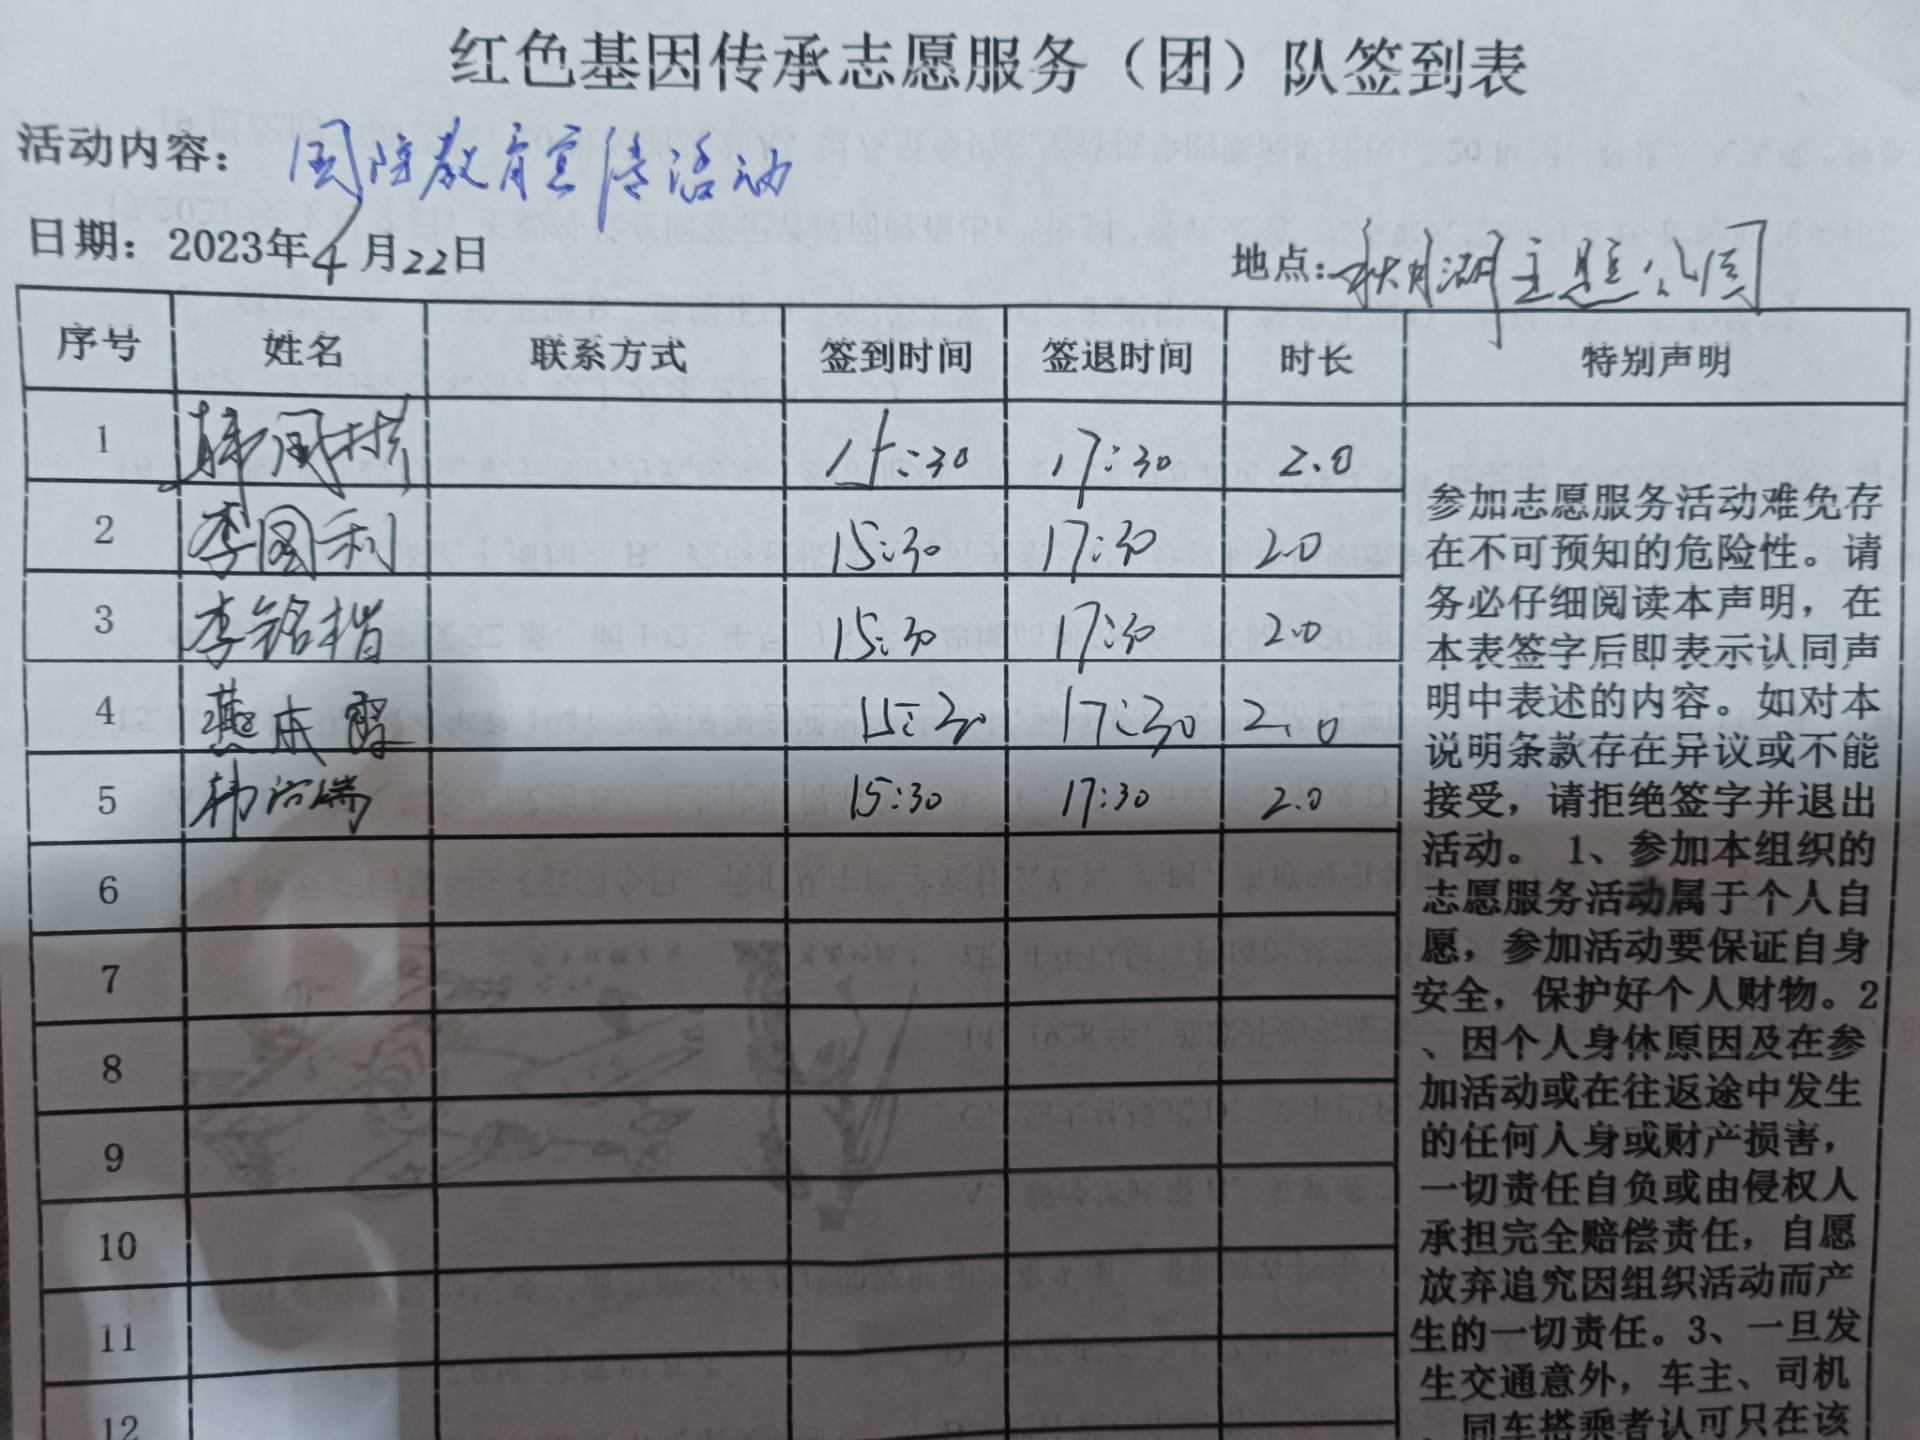 红色基因传承志愿服务（团）队签到表
活动内容：国防教育宣传活动
日期：2023年4月22日 地点：秋月湖主题公园
序号 姓名 联系方式 签到时间 签退时间 时长 特别声明
1 韩国栋 15:30 17:30 2.0
2 李国利 15:30 17:30 2.0
3 李铭楷 15:30 17:30 2.0
4 燕成 15:30 17:30 2.0
5 韩 15:30 17:30 2.0
6
7
8
9
10
11
12
参加志愿服务活动难免存
在不可预知的危险性。请
务必仔细阅读本声明，在
本表签字后即表示认同声
明中表述的内容。如对本
说明条款存在异议或不能
接受，请拒绝签字并退出
活动。 1、参加本组织的
志愿服务活动属于个人自
愿，参加活动要保证自身
安全，保护好个人财物。2
、因个人身体原因及在参
加活动或在往返途中发生
的任何人身或财产损害，
一切责任自负或由侵权人
承担完全赔偿责任，自愿
放弃追究因组织活动而产
生的一切责任。3、一旦发
生交通意外，车主、司机
、同车搭乘者认可只在该